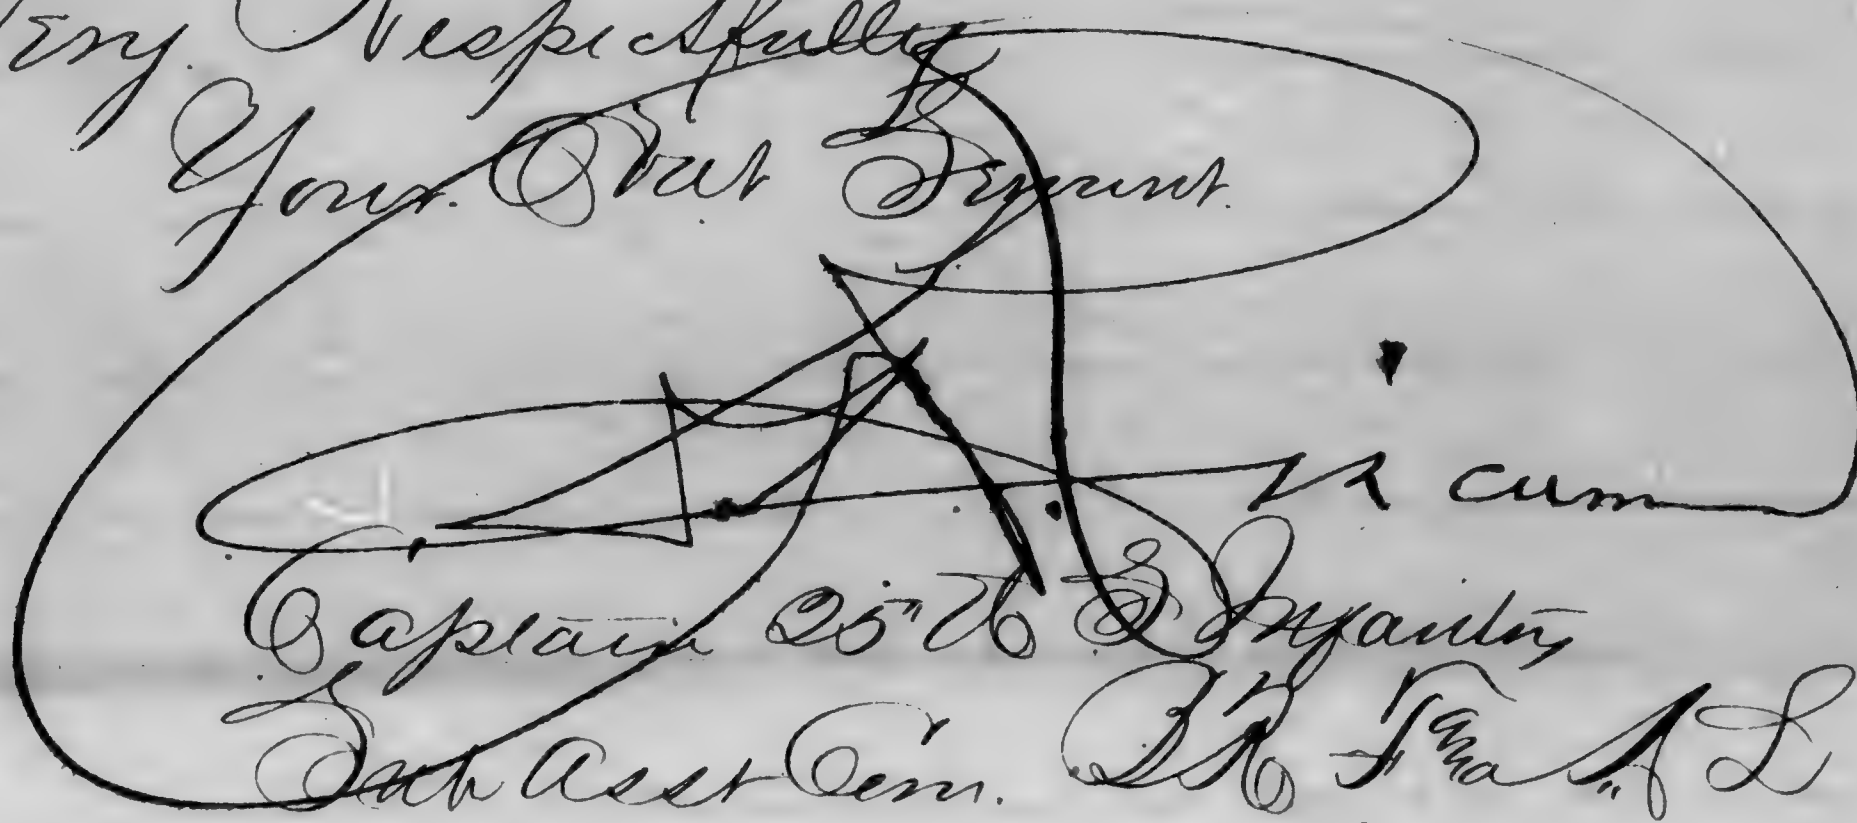 Very Respectfully
Your Obdt Servant.
Captain 25" U S Infantry
Sub Asst Com. B R F & A L